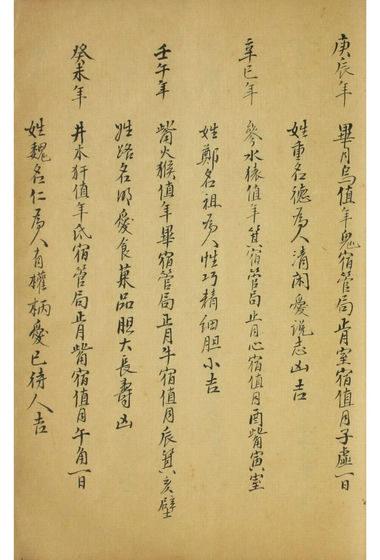 庚辰年　畢月烏值年鬼宿管局正月室宿值月子虛一日
姓重名德為人清闲愛説志凶吉
辛巳年　參水猿值年箕宿管局正月心宿值月酉觜寅室
姓鄭名祖為人性巧精細胆小吉
壬午年　觜火猴值年畢宿管局正月牛宿值月辰箕亥壁
姓路名明愛食菓品胆大長壽凶
癸未年　井木犴值年氐宿管局正月觜宿值月午角一日
姓魏名仁為人有權柄愛已待人吉